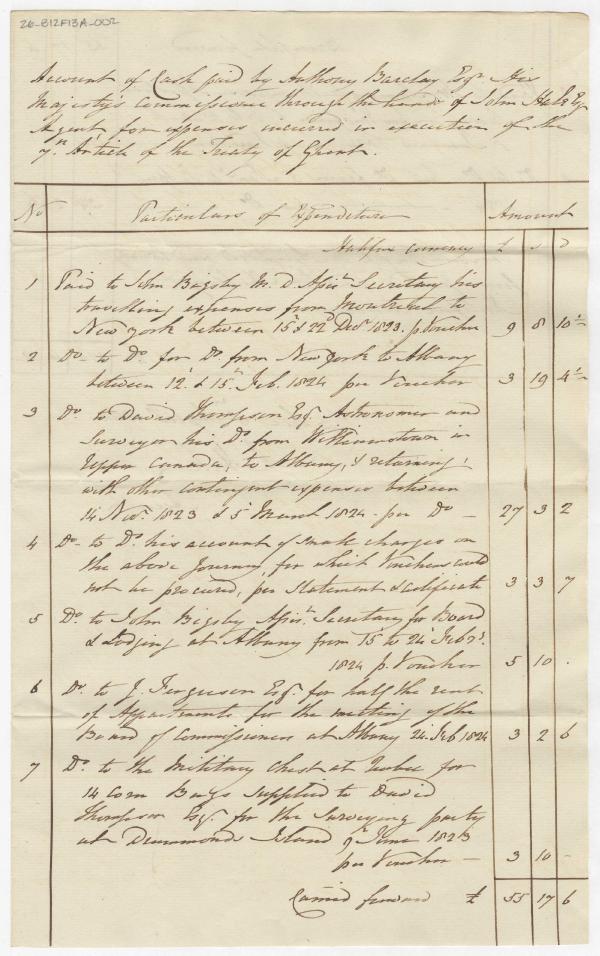 26-B12F13A-002
Account of Cash paid by Anthony Barclay Esqr. His
Majesty's Commissioner through the hands of John Hale Esqr
Agent for expenses incurred in execution of the
7th. Article of the Treaty of Ghent.
No Particulars of Expenditure Amount
Halifax currency £ s d
1 Paid to John Bigsby M. D. Assist. Secretary his
travelling expenses from Montreal to
New york between 15 & 22d Decr 1823. p. Voucher 9 8 10½
2 Do to Do. for Do. from New york to Albany
between 12. & 15. Feb. 1824 per Voucher 3 19 4½
3 Do to David Thompson Esqr. Astronomer and
Surveyor his Do. from Williamstown in
Upper Canada, to Albany, & returning,
with other contingent expenses between
14 Novr. 1823 & 5 March 1824 - per Do - 27 3 2
4 Do - to Do. his account of small charges on
the above Journey for which Vouchers could
not be procured, per Statement & certificate 3 3 7
5 Do. to John Bigsby Assist. Secretary for Board
& Lodging at Albany from 15 to 24 Feby.
1824 p. Voucher 5 10 .
6 Do. to J. Ferguson Esqr. for half the rent
of Appartments for the meeting of the
Board of Commissioners at Albany 24. Feb 1824 3 2 6
7 Do. to the Military Chest at Quebec for
14 Corn Bags supplied to David
Thompson Esqr. for the Surveying party
at Drummonds Island 9 June 1823
per Voucher - 3 10 -
Carried forward £ 55 17 6